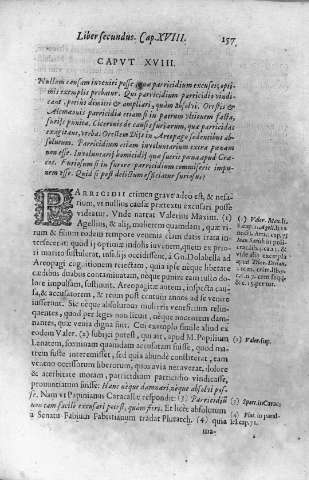 Liber secundus. Cap. XVIII. 157
CAPVT XVIII.
Nullam causam inveniri posse, quæ parricidium excuset, opti-
mis exemplis probatur. Qui parricidium parricidio vindi-
cant, potius dimitti & ampliari, quàm absolvi. Orestis &
Alcmæonis parricidia etiam si in patrum vltionem facta,
furiis punita. Ciceronis de causis furiarum, quæ parricidas
exagitant, verba. Orestem Diis in Areopago sedentibus ab-
solutum. Parricidium etiam involuntarium extra pœnam
non esse. Involuntarii homicidij quæ fuerit pœna apud Græ-
cos. Furiosum si in furore parricidium commiserit impu-
nem esse. Quid si post delictum efficiatur furiosus?
PARRICIDII crimen grave adeo est, & nefa-
rium, vt nullius causæ prætextu excusari posse
videatur. Vnde narrat Valerius Maxim. (1)
Agellius, & alij, mulierem quandam, quæ vi-
rum & filium eodem tempore venenis clam
interfecerat: quod ij optimæ indolis iuvenem, ex prio-
ri marito sustulerat, insidiis occidissent, à Gn. Dolabella ad
Areopagi cognitionem reiectam, quia ipse neque liberare
cædibus duabus contaminatam, neque punire eam iusto do-
lore impulsam, sustinuit. Areopagitæ autem, inspecta cau-
sa, & accusatorem, & ream post centum annos ad se venire
iusserunt. Sic neque absolverunt mulieris veneficium relin-
quentes, quod per leges non licuit, neque nocentem dam-
nantes, quæ venia digna fuit. Cui exemplo simile aliud ex
eodem Valer. (2) subijci potest, qui ait, apud M. Popilium
Lænatem, quamdam accusatam fuisse, quod ma-
trem fuste interemisset, sed quia abunde constiterat, eam
veneno occisorum liberorum, quos avia necaverat, dolore
& acerbitate motam, parricidium parricidio vindicasse,
pronuntiatum fuisse: Hanc neque damnari, neque absolvi pos-
se. Nam vt Papinianus Caracallæ respondit (3) Parricidium
non tam facile excusari potest, quàm fieri. Et licet absolutum
a Senatu Fabium Fabritianum tradat Plutarch. (4) quia
ma-
(1) Valer. Max. li.
8. cap. 1. Agell. li. 12
(2) Valer. sup.
(3) Spart. in Carac.
(4) Plut. in paral-
lel. cap.